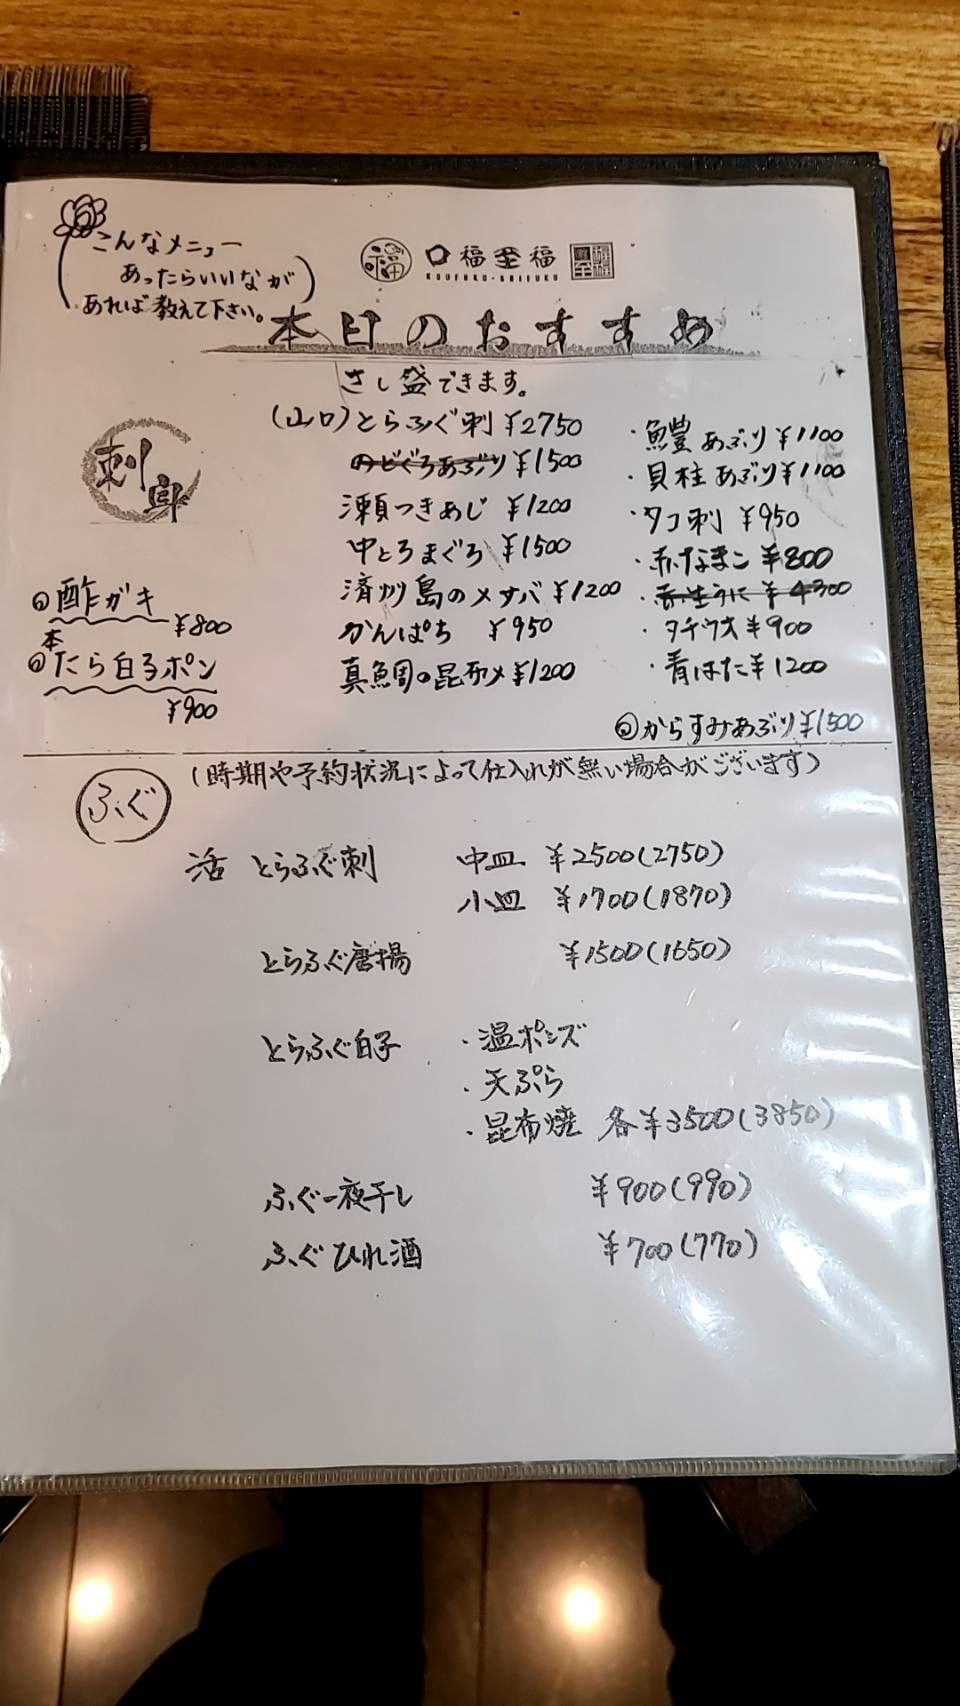 こんなメニュー
あったらいいなが
あれば教えて下さい。
口福至福
KOUFUKU-SHIFUKU
本日のおすすめ
さし盛できます。
刺身
(山口)とらふぐ刺 ¥2750
のどぐろあぶり ¥1500
瀬つきあじ ¥1200
中とろまぐろ ¥1500
済州島のメサバ ¥1200
かんぱち ¥950
真鯛の昆布〆 ¥1200
・鱧あぶり ¥1100
・貝柱あぶり ¥1100
・タコ刺 ¥950
・赤なまこ ¥800
・赤生うに ¥4300
・タチウオ ¥900
・青はた ¥1200
酢ガキ
¥800
本
たら白子ポン
¥900
からすみあぶり ¥1500
ふぐ
(時期や予約状況によって仕入れが無い場合がございます)
活 とらふぐ刺 中皿 ¥2500(2750)
小皿 ¥1700(1870)
とらふぐ唐揚 ¥1500(1650)
とらふぐ白子 ・温ポンズ
・天ぷら
・昆布焼 各¥3500(3850)
ふぐ一夜干し ¥900(990)
ふぐひれ酒 ¥700(770)